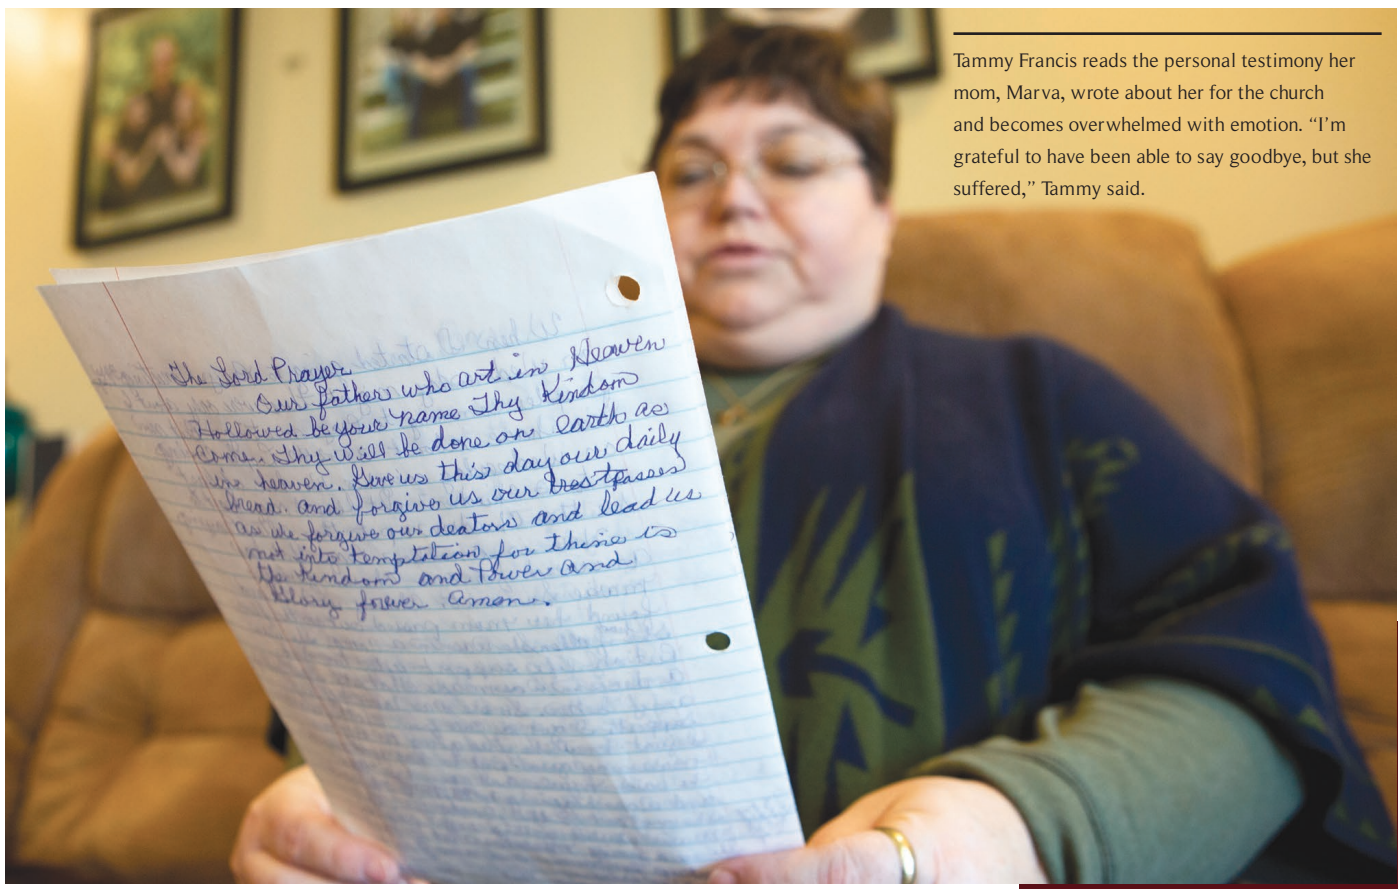 Tammy Francis reads the personal testimony her
mom, Marva, wrote about her for the church
and becomes overwhelmed with emotion. “I’m
grateful to have been able to say goodbye, but she
suffered,” Tammy said.
The Lord Prayer
Our father who art in Heaven
Hollowed be your name Thy Kindom
come. Thy will be done on earth as
in heaven. Give us this day our daily
bread. and forgive us our trestpasses
as we forgive our deators and lead us
not into temptation for thine is
the Kindom and Power and
Glory forever amen.